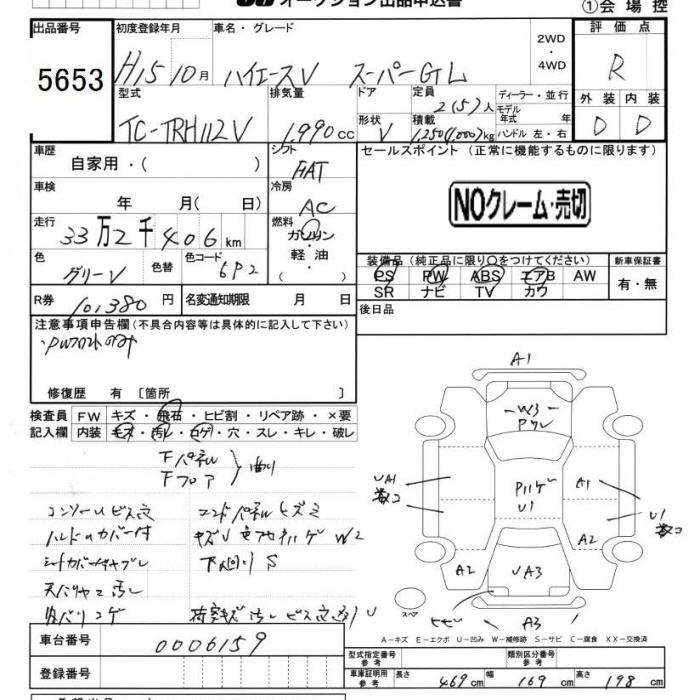 オークション出品申込書
①会場控
出品番号
5653
初度登録年月
H15 10月
車名・グレード
ハイエースV スーパーGL
2WD
・
4WD
評価点
R
型式
TC-TRH112V
排気量
1,990cc
ドア
形状
V
定員
2(5)人
積載
1,250(1,000)kg
ディーラー・並行
モデル
年式 年
ハンドル 左・右
外装 内装
D D
車歴
自家用・( )
シフト
FAT
セールスポイント (正常に機能するものに限ります)
車検
年 月( 日)
冷房
AC
NOクレーム・売切
走行
33万2千406km
燃料
ガソリン
・
軽油
・
( )
色
グリーV
色替
色コード
6P2
装備品(純正品に限り〇をつけてください)
PS PW ABS エアB AW
SR ナビ TV カワ
新車保証書
有・無
R券
10,380円
名変通知期限 月 日
後日品
注意事項申告欄(不具合内容等は具体的に記入して下さい)
修復歴 有 [箇所 ]
検査員
記入欄
FW キズ・飛石・ヒビ割・リペア跡・×要
内装 キズ・汚レ・コゲ・穴・スレ・キレ・破レ
Fパネル
Fフロア
曲り
コンソールビス穴
ハンドルカバー付
シートカバー付ヤブレ
天バリヤニ汚レ
内バリコゲ
下廻りS
A1
W3
Pワレ
UA1
Pハゲ
U1
A1
U1
A2
A2
UA3
ヒビ
A3
スペア
A-キズ E-エクボ U-凹み W-補修跡 S-サビ C-腐食 XX-交換済
車台番号
0006159
登録番号
型式指定番号
参考
類別区分番号
参考
車庫証明用
参考
長さ 469cm 幅 169cm 高さ 198cm